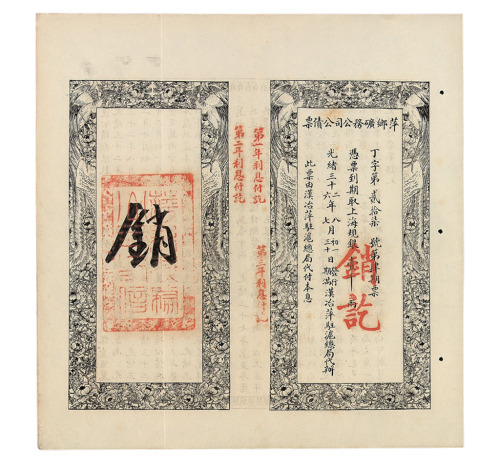 萍鄉礦務公司公債票
丁字第 貳拾柒 號第 期票
憑票到期取上海規銀 兩
光緒三十二年八月初一日發行
三十六年七月三十日期滿漢冶萍駐滬總局代辦
此票由漢冶萍駐滬總局代付本息
銷訖
第一年利息付訖
第二年利息付訖
第三年利息付訖
銷